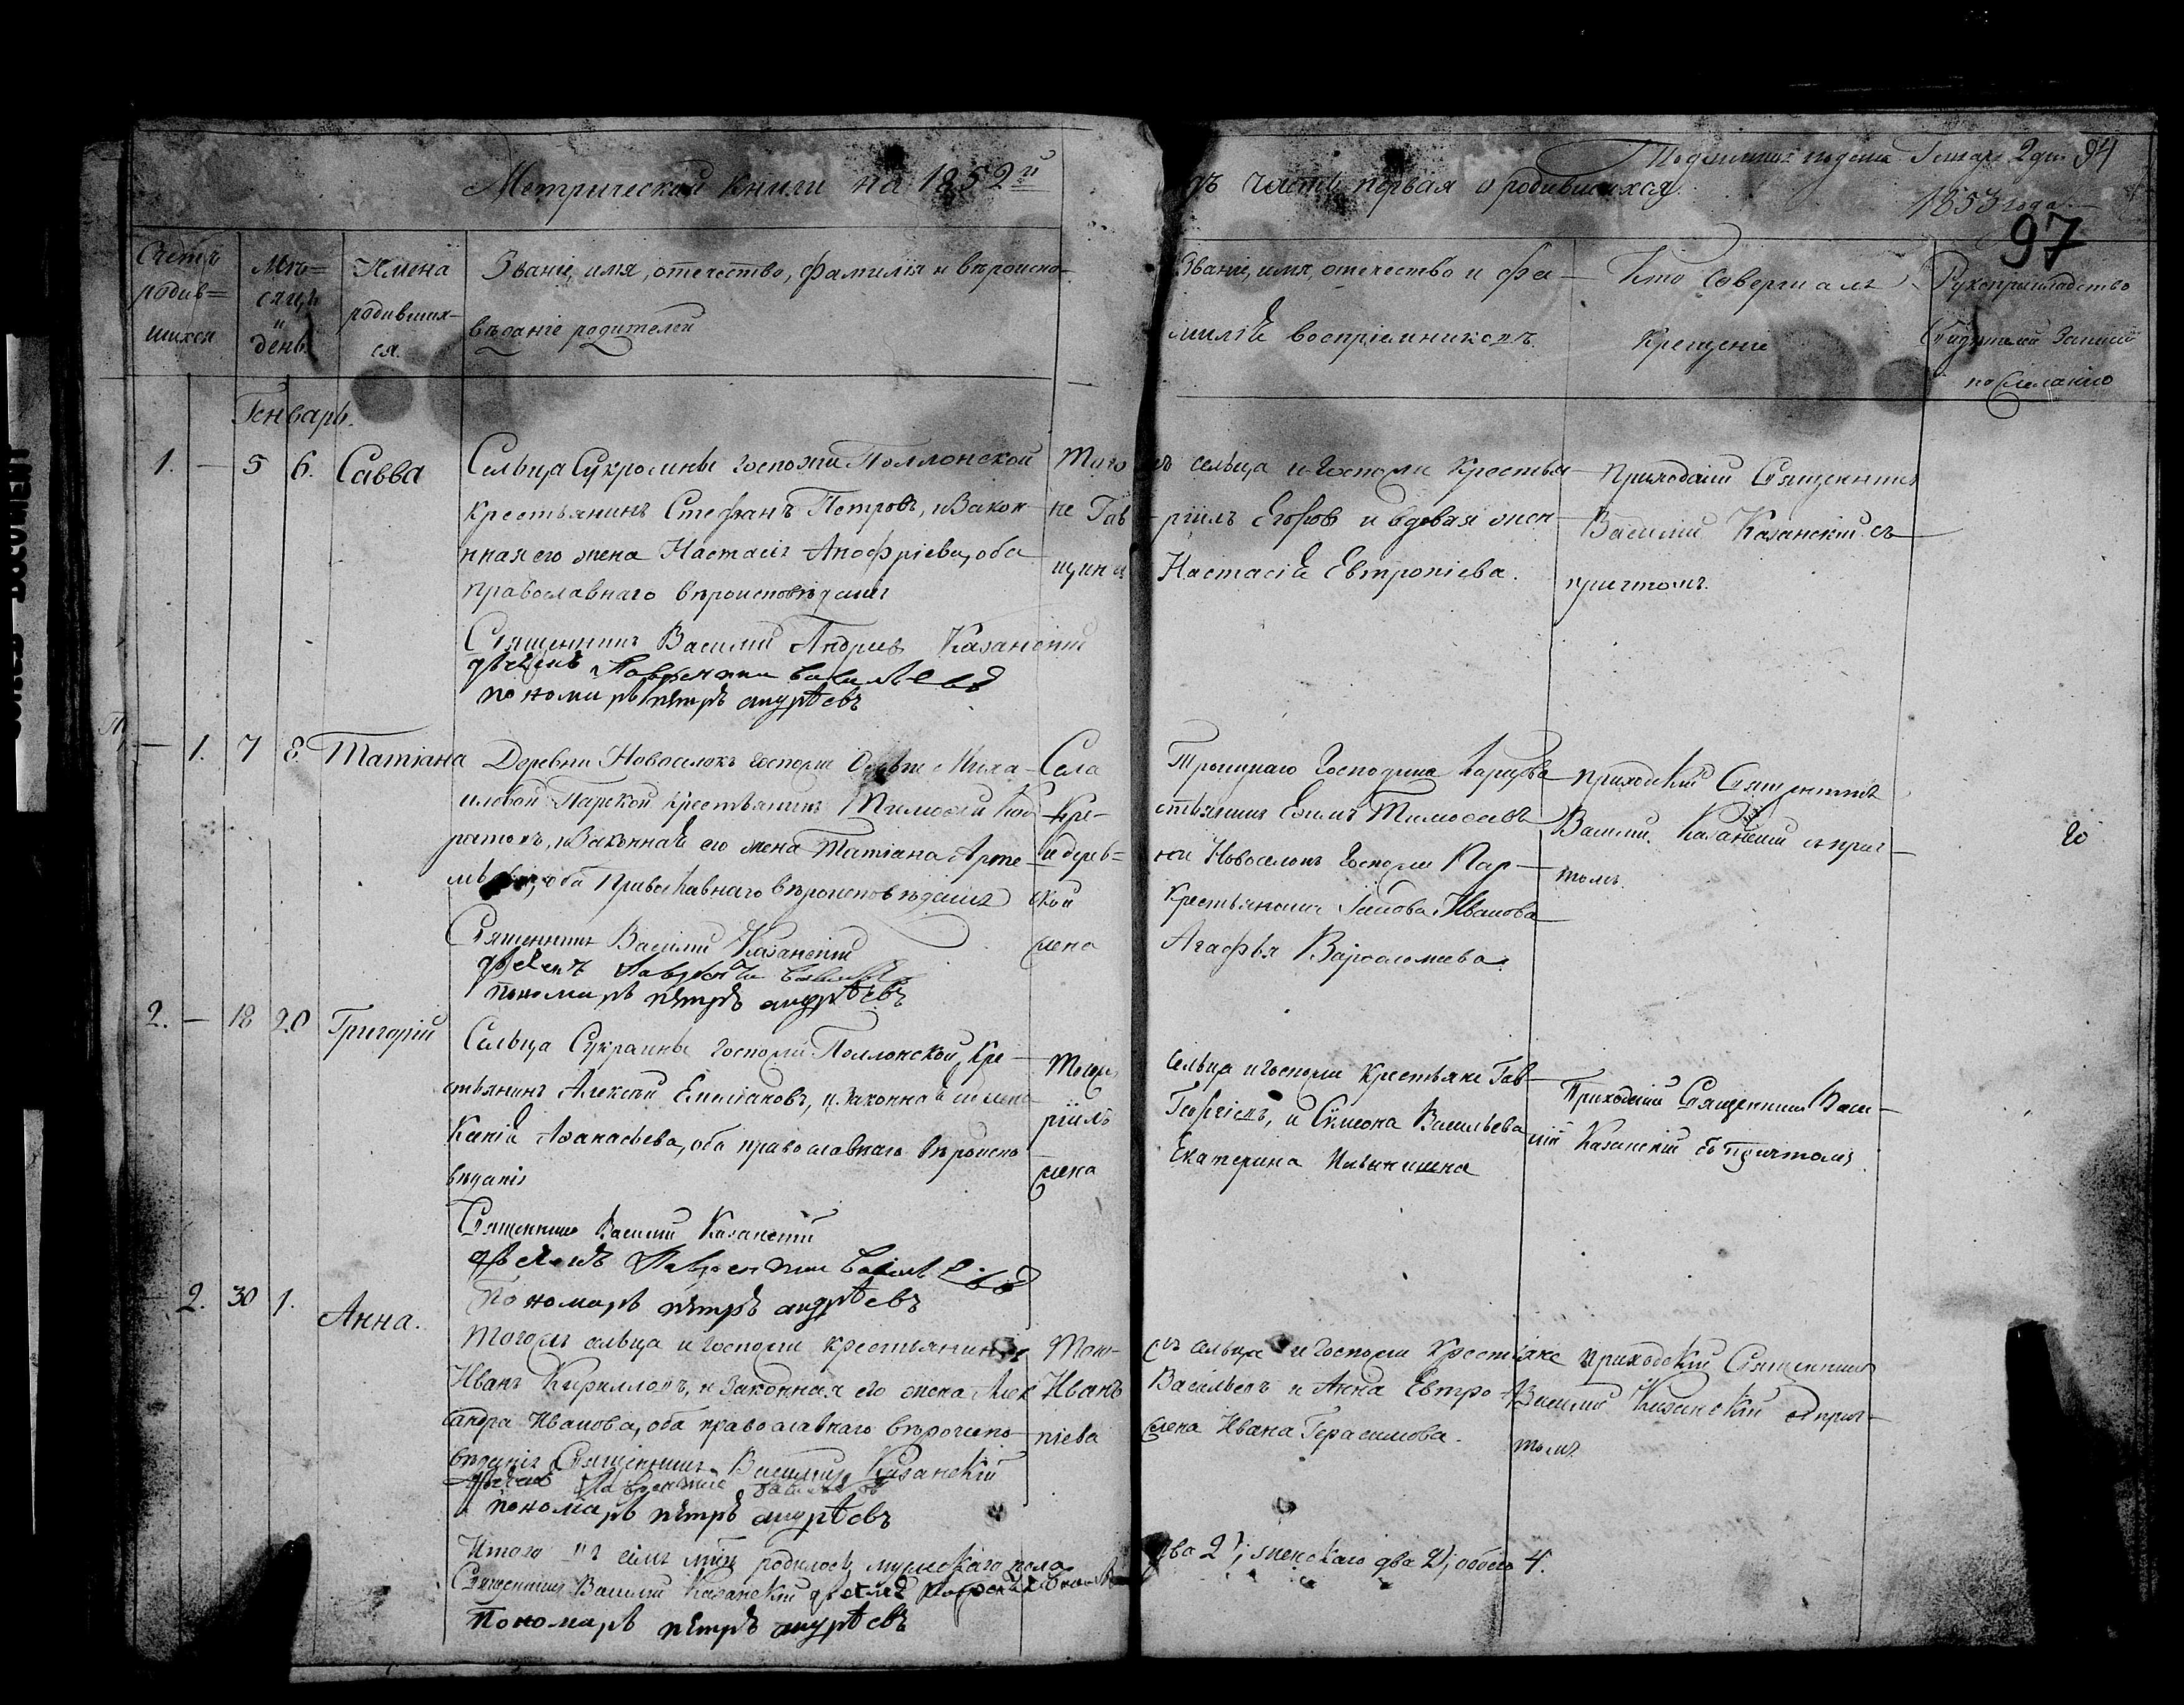 Метрической книги на 1852й
дъ часть первая о родившихся
1853 года
94
97
Счетъ родив= шихся
Мѣ= сяцъ и день
Имена родивших- ся.
Званіе, имя, отечество, фамилія и вѣроиспо-
вѣданіе родителей
Званіе, имя, отечество и фа-
миліе воспріемниковъ.
Кто совершалъ
Крещеніе
Рукоприкладство
свидѣтелей записи
по желанію
Генварь.
1. — 5 6. Савва
Сельца Сукромны госпожи Поллонской
крестьянинъ Стефанъ Петровъ, и закон-
нная его жена Настасія Анофріева, оба
православнаго вѣроисповѣданія
Священникъ Василій Андреевъ Казанскій
дьячекъ Лаврентий Васильевъ
пономарь петръ андрѣевъ
Того жъ сельца и госпожи крестья-
не Гав-ріилъ Егоровъ и вдовая жен-
щина Настасіе Евтропіева.
Приходскій Священникъ
Василій Казанскій съ
причтомъ.
— 1. 7 8 Татіана
Деревни Новоселокъ госпожи
крестьянинъ Тимофей Код-
ратовъ, и законнае его жена Татіана Арте-
оба Православнаго вѣроисповѣданія
Священникъ Василій Казанскій
дьячекъ Лаврентий
пономарь петръ андрѣевъ
Села Троицкаго Господина
Кре-стьянинъ Ефимъ Тимофеевъ
и дерев=ни Новоселокъ Госпожи Пар-
ской Крестьянина Іакова Иванова
жена Агафья Варфоломеева.
приходскій Священникъ
Василій Казанскій съ прич-
томъ.
20
2. — 18 20 Григорій
Сельца Сукромны госпожи Поллонской, Кре-
стьянинъ Алексѣй Емеліановъ, и законнае его жена
Ксеніе Афанасьева, оба православнаго вѣроиспо-
вѣданія
Священникъ Василій Казанскій
дьячекъ Лаврентий Васильевъ
Пономарь петръ андрѣевъ
Тогожъ сельца и госпожи крестьяне Гав-
ріилъ Георгіевъ, и Симеона Васильева
жена Екатерина
Приходскій Священникъ Васи-
лій Казанскій съ Причтомъ
— 2. 30 1. Анна.
Тогожъ сельца и госпожи крестьянинъ
Иванъ Кирилловъ, и законная его жена Алек-
сандра Иванова, оба православнаго вѣроиспо-
вѣданія Священникъ Василій Казанскій
дьячекъ Лаврентий Васильевъ
пономарь петръ андрѣевъ
Того-жъ сельца и госпожи Крестьяне
Иванъ Васильевъ и Анна Евтро-
піева жена Ивана Герасимова.
приходскій Священникъ
Василій Казанскій съ прич-
томъ.
Итого въ семъ мѣсяцѣ родилось мужескаго пола два 2, женскаго два 2, обоего 4.
Священникъ Василій Казанскій дьячекъ Лаврентий Васильевъ
Пономарь петръ андрѣевъ